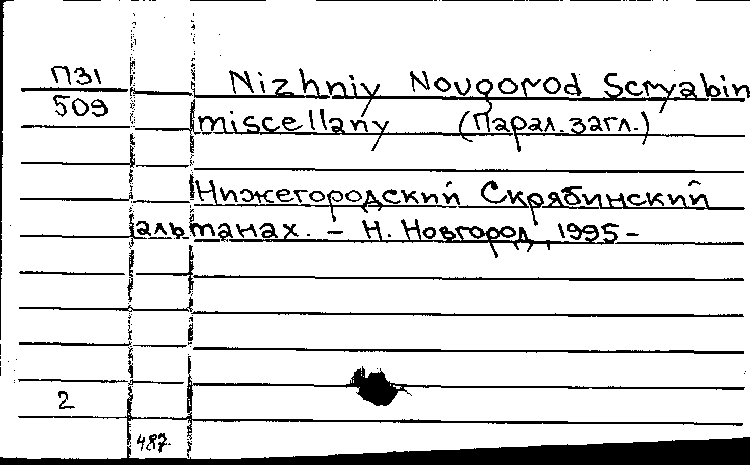 П31
509
Nizhniy Novgorod Scryabin
miscellany (Парал. загл.)
Нижегородский Скрябинский
альманах. – Н. Новгород, 1995 –
2
487